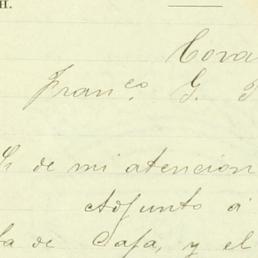 H.
Cova
Fran.co G.
de mi atencion
Adjunto á
de Cafa, y el